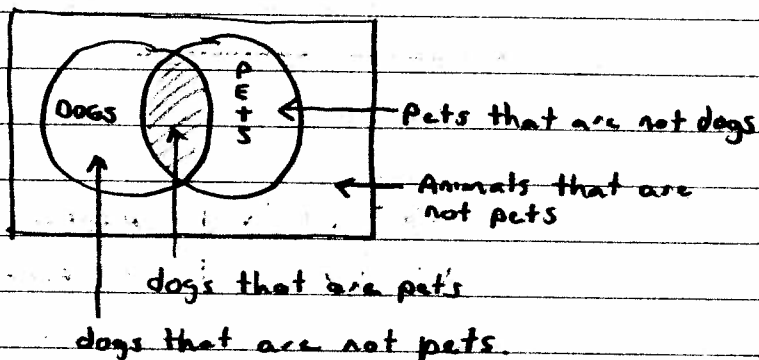 DOGS
PETS
Pets that are not dogs
Animals that are
not pets
dogs that are pets
dogs that are not pets.